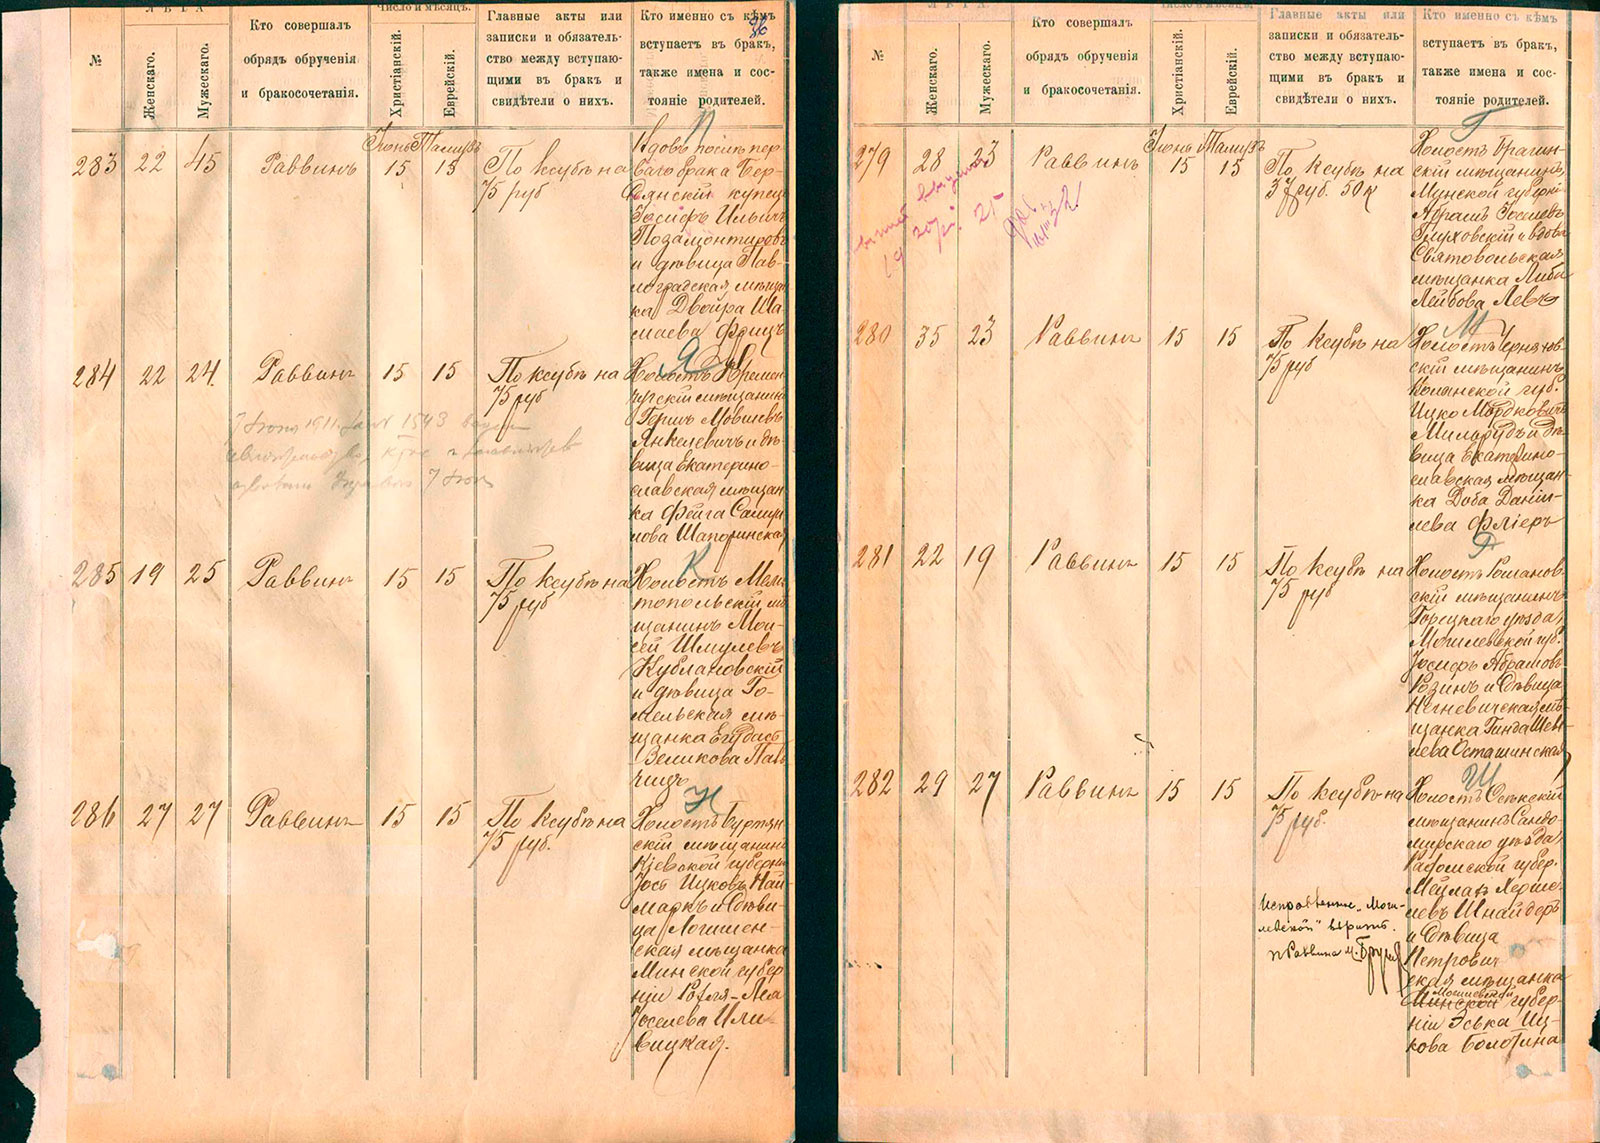 ЛѢТА
Число и мѣсяцъ.
№
Женскаго.
Мужескаго.
Кто совершалъ
обрядъ обрученія
и бракосочетанія.
Христіанскій.
Еврейскій.
Главные акты или
записки и обязатель-
ство между вступаю-
щими въ бракъ и
свидѣтели о нихъ.
Кто именно съ кѣмъ
вступаетъ въ бракъ,
также имена и сос-
тояніе родителей.
36
Іюнь Тамузъ
283 22 45 Раввинъ 15 15
По ксубѣ на
75 руб
П
Вдовъ послѣ пер-
ваго брака Бер-
дянскій купец
Іосифъ Ильичъ
и дѣвица Пав-
лоградская мѣщан
ка Двойра Ша-
маева Фрицъ
284 22 24 Раввинъ 15 15
По ксубѣ на
75 руб
Я
Холостъ Кремен-
чугскій мѣщанинъ
Гершъ Мовшевъ
Янкелевичъ и дѣ-
вица Екатерино-
славская мѣщан
ка Фейга
Шапоринская
7 Іюня 1911
285 19 25 Раввинъ 15 15
По ксубѣ на
75 руб
К
Холостъ Мели
топольскій мѣ
щанинъ Мои-
сей Шмулевъ
Кублановскій
и дѣвица Го-
мельская мѣ-
щанка
Великова
286 27 27 Раввинъ 15 15
По ксубѣ на
75 руб.
Н
Холостъ
скій мѣщанинъ
Кіевской губерніи
Іось Ицковъ Най-
маркъ и дѣви-
ца Логишен-
ская мѣщанка
Минской губер
ніи Рохля-Леа
Іоселева Или-
вицкая.
ЛѢТА
Число и мѣсяцъ.
№
Женскаго.
Мужескаго.
Кто совершалъ
обрядъ обрученія
и бракосочетанія.
Христіанскій.
Еврейскій.
Главные акты или
записки и обязатель-
ство между вступаю-
щими въ бракъ и
свидѣтели о нихъ.
Кто именно съ кѣмъ
вступаетъ въ бракъ,
также имена и сос-
тояніе родителей.
Іюнь Тамузъ
279 28 23 Раввинъ 15 15
По ксубѣ на
37 руб. 50 к
Г
Холостъ Брагин-
скій мѣщанинъ,
Минской губерніи
Абрамъ Іосиевъ
Глуховскій и вдова
Святовольская
мѣщанка Либа
Лейбова Левъ
280 35 23 Раввинъ 15 15
По ксубѣ на
75 руб
М
Холостъ Черняхов-
скій мѣщанинъ
Волынской губ.
Ицко Мордковичъ
Мильрудъ и дѣ-
вица Екатерино-
славская мѣщан-
ка Доба Даніи-
лева Фліеръ
281 22 19 Раввинъ 15 15
По ксубѣ на
75 руб
Р
Холостъ Романов-
скій мѣщанинъ
Горецкаго уѣзда,
Могилевской губ.
Іосифъ Абрамовъ
Розинъ и дѣвица
Негневичская мѣ-
щанка Гинда
лева Осташинская
282 29 27 Раввинъ 15 15
По ксубѣ на
75 руб.
Ш
Холостъ Осѣкскій
мѣщанинъ Сандо-
мирскаго уѣзда,
Радомской губер.
Мейлахъ Херше-
левъ Шнайдеръ
и дѣвица
Петрович
ская мѣщанка
Могилевской
Минской губер-
ніи Эська Иц-
кова Болотина
Исправленное „Моги-
левской" вѣрить.